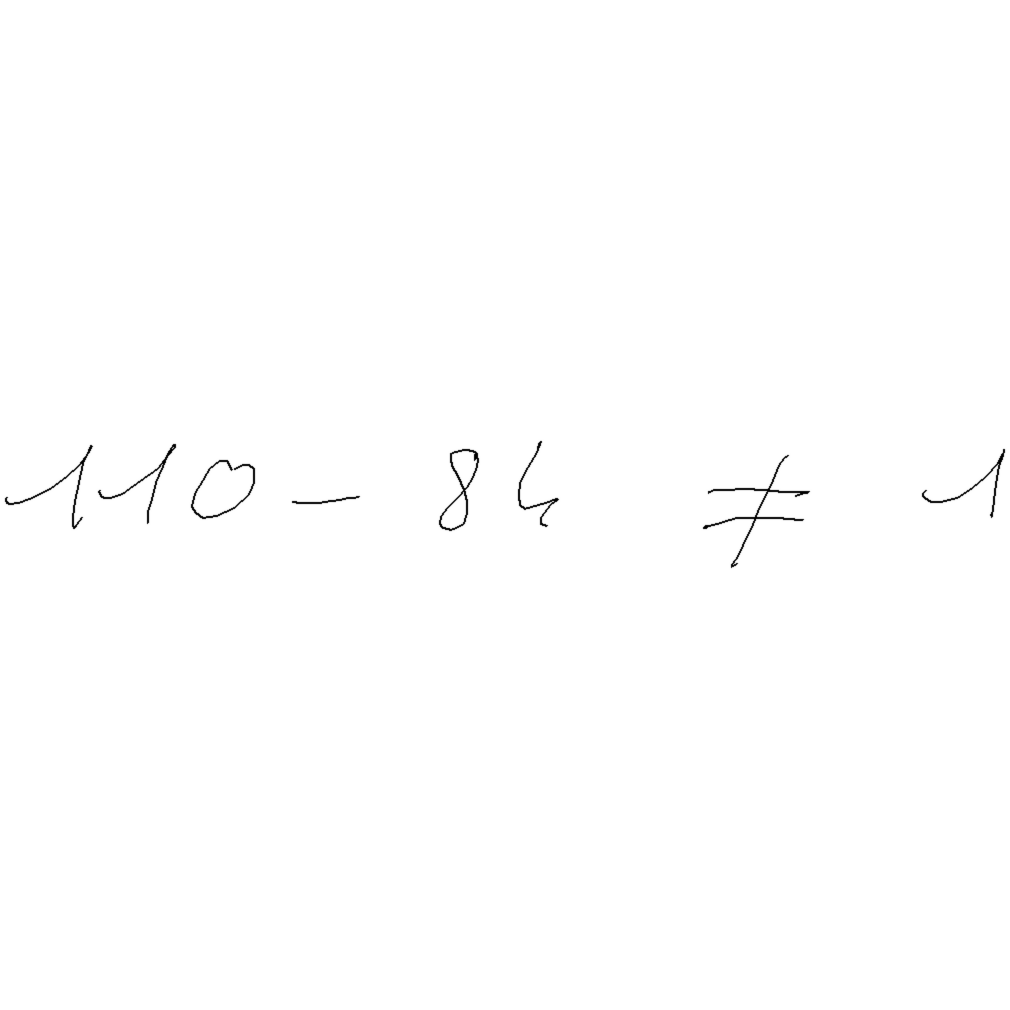 110 - 84 ≠ 1